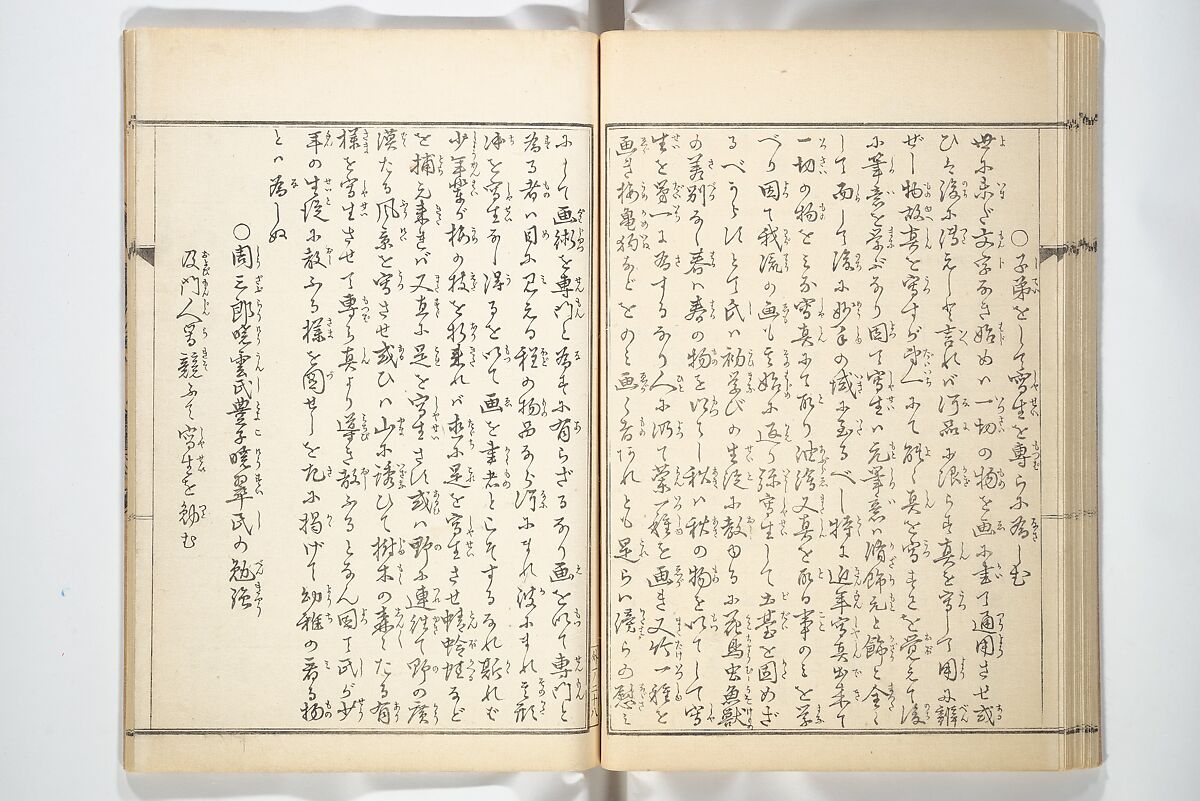 ○子弟をして写生を専らに為しむ
世に未だ文字なき始めハ一切の物を画に書て通用させ或
ひハ後に ト言れバ何品に限らず真を写して用に弁
ぜし物故真を写すが第一にて能く真を写すを覚えて後
に筆意を学ぶなり固て写生ハ元筆意ハ脩飾元と飾と全く
して而して後に妙手の域に至るべし特に近年写真出来て
一切の物をミな写真にて取り油隝又真を取る事のミを学
べり固て我流の画も其始に返り弥写生して土台を固めざ
るべからずとて氏ハ初学びの生徒に教ゆるに花鳥虫魚獣
の差別なく春ハ春の物を以てし秋ハ秋の物を以てして写
生を第一に為するなり人に仍て菊一種を画き又竹一種を
画き梅亀狗などをのミ画く者あれとも是らハ僕らの慰ミ
にして画術を専門と為すに有らざるなり画を以て専門と
為る者ハ目に見る程の物品なら何にまれ彼にまれ其形
体を写生なし得るを以て画を書者と云ふするなれ斯れば
少年輩が梅の枝を折来れバ直に是を写生させ蜻蛉蛙など
を捕え来れバ又直に是を写生さひ或ハ野に連往て野の広
漠たる風景を写させ或ひハ山に誘ひて樹木の森々たる有
様を写生させて専ら真より導き教ふるとなん固て氏が少
年の生徒に教ふる様を図せしを左に掲げて幼稚の看る物
とハ為しぬ
○周三郎暁雲氏豊子暁翠氏の勉強
及門人等競ふて写生を勉む